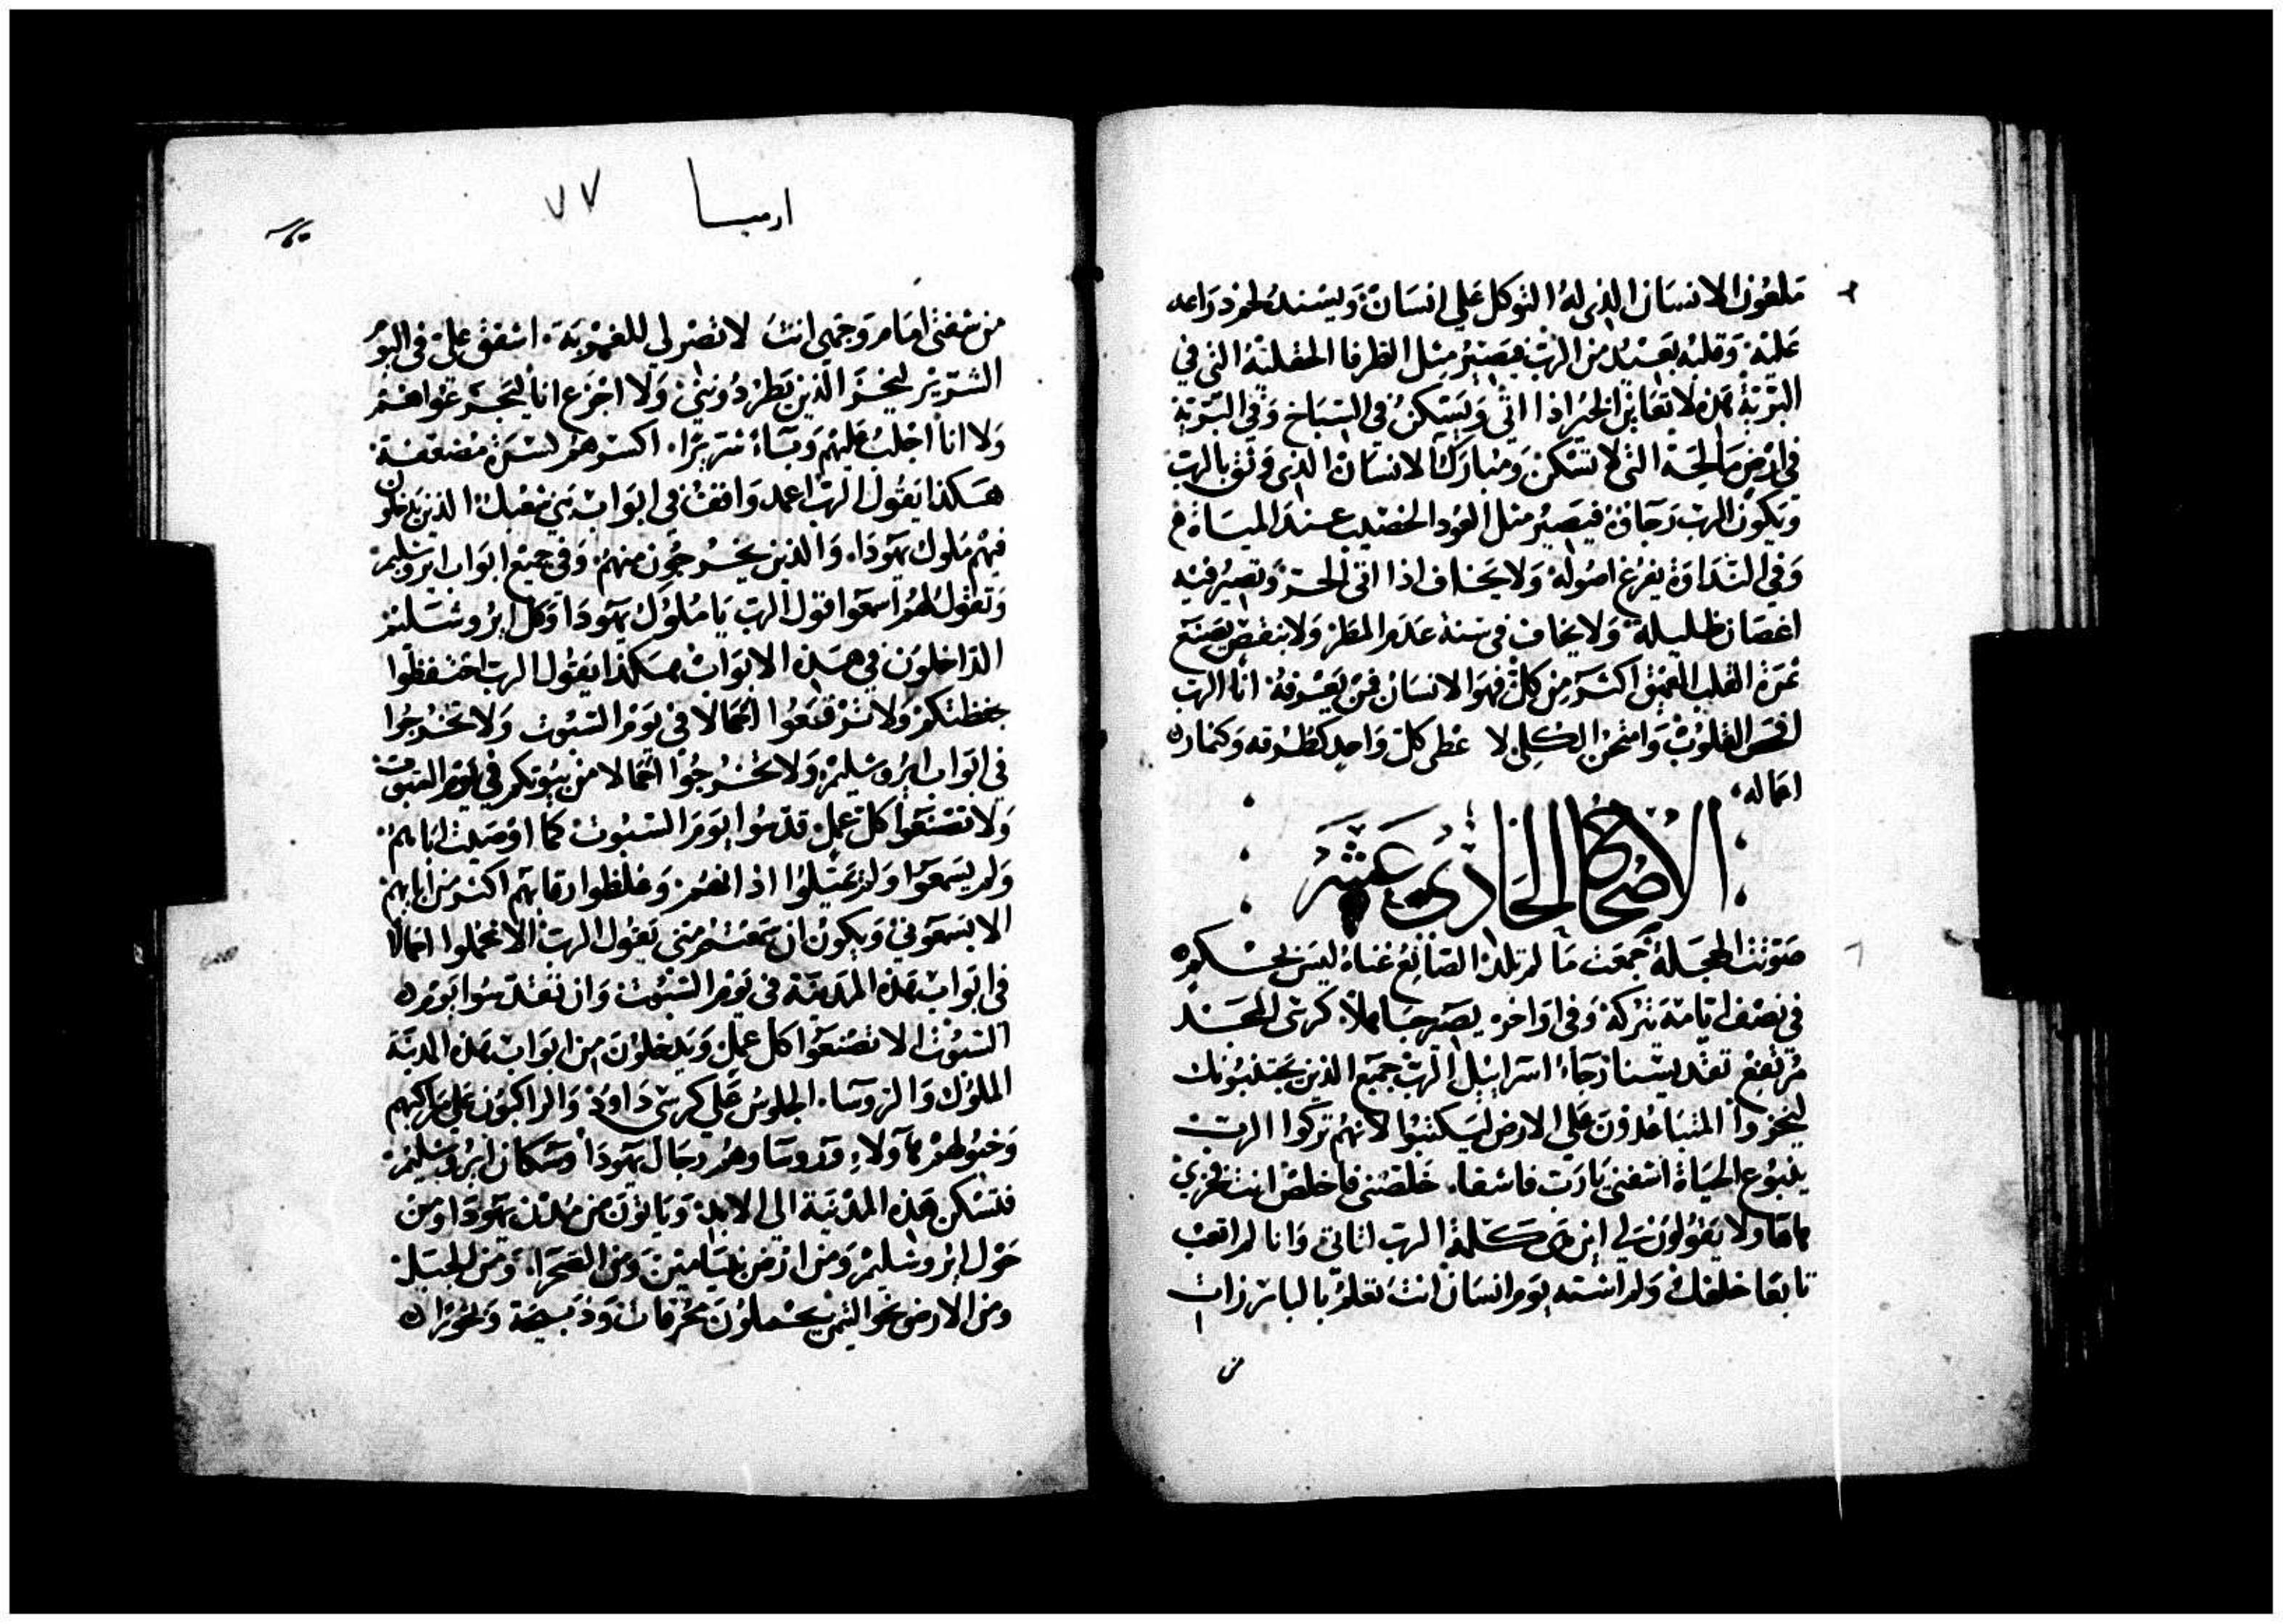 ملعون الانسان الذي له التوكل على انسان ويسند لحم دراعه
عليه وقلبه يبعد من الرب فيصير مثل الطرفا الحقلية التي في
البرية هذه لا تعاين الخير اذا اتى ويسكن في السباخ وفي البرية
في ارض مالحة التي لا تسكن ومبارك الانسان الذي وثق بالرب
ويكون الرب رجاؤه فيصير مثل العود الخصيب عند المياة
وفي النداوة يفرغ اصوله ولا يخاف اذا اتى الحر وتصير فيه
اغصان ظليلة ولا يخاف في سنة عدم المطر ولا ينقص يصنع
ثمرة القلب العميق اكثر من كل فهو الانسان فمن يعرفه انا الرب
افحص القلوب وامتحن الكلى لاعطى كل واحد كطرقه وكثماره
اعماله
الاصحاح الحادي عشر
صوتت الحجلة جمعت ما لم تلد الصانع غناه ليس بحكم
في نصف ايامه يتركه وفي اواخره يصير جاهلا كرسي المجد
مرتفع تقديسنا رجاء اسراييل الرب جميع الذين يجتنبونك
ليخزوا المتباعدون على الارض ليكتبوا لانهم تركوا الرب
ينبوع الحياة اشفني يارب فاشفا خلصني فاخلص انت فخري
هاها ولا يقولون لي اين هي كلمة الرب لتاتي وانا لم اتعب
تابعا خلفك ولم اشته يوم انسان انت تعلم بالبايرزات
من
ارميا ٧٧
من شفتي امام وجهي انت لا تصر لي للغربة اشفق علي في اليوم
الشرير ليخز الذين يطردونني ولا اجزع انا ليجزعوا هم
ولا انا اجلب عليهم وساء شريرا اكسرهم كسرة مضعفة
هكذا يقول الرب اعمد واقف في ابواب بني شعبك الذين يدخلون
فيهم ملوك يهودا والذين يخرجون منهم وفي جميع ابواب ايروشليم
وتقول لهم اسمعوا قول الرب يا ملوك يهودا وكل ايروشليم
الداخلون في هذه الابواب هكذا يقول الرب احتفظوا
بحفظتكم ولا ترفعوا احمالا في يوم السبوت ولا تخرجوا
في ابواب ايروشليم ولا تخرجوا احمالا من بيوتكم في يوم السبوت
ولا تصنعوا كل عمل قدسوا يوم السبوت كما اوصيت اباهم
ولم يسمعوا ولم يميلوا اذانهم وغلظوا رقابهم اكثر من ابايهم
الا يسمعوني ويكون ان سمعتم مني يقول الرب الا تحملوا احمالا
في ابواب هذه المدينة في يوم السبوت وان تقدسوا يوم
السبوت الا تصنعوا كل عمل ويدخلون من ابواب هذه المدينة
الملوك والروسا الجلوس على كرسي داوود والراكبون على مراكبهم
وخيولهم هاولاء وروسا وهم رجال يهودا وسكان ايروشليم
فتسكن هذه المدينة الى الابد وياتون من مدن يهودا ومن
حول ايروشليم ومن ارض بنيامين ومن الصحرا ومن الجبل
ومن الارض نحو التيمن يحملون محرقات وذبيحة وبخورا